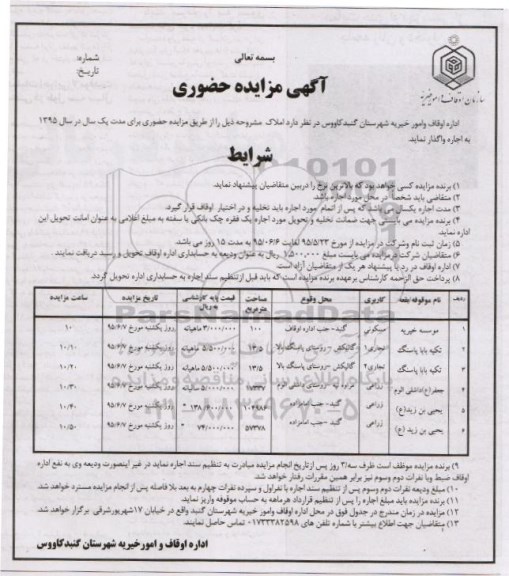 بسمه تعالی
شماره:
تاریخ:
سازمان اوقاف و امور خیریه
آگهی مزایده حضوری
اداره اوقاف وامور خیریه شهرستان گنبدکاووس در نظر دارد املاک مشروحه ذیل را از طریق مزایده حضوری برای مدت یک سال در سال ۱۳۹۵
به اجاره واگذار نماید.
شرایط
۱) برنده مزایده کسی خواهد بود که بالاترین نرخ را دربین متقاضیان پیشنهاد نماید.
۲) متقاضی باید شخصاً در محل مورد اجاره باشد.
۳) مدت اجاره یکسال می باشد که پس از اتمام مورد اجاره باید تخلیه و در اختیار اوقاف قرار گیرد.
۴) برنده مزایده می بایستی جهت ضمانت تخلیه و تحویل مورد اجاره یک فقره چک بانکی یا سفته به مبلغ اعلامی به عنوان امانت تحویل این
اداره نماید.
۵) زمان ثبت نام وشرکت در مزایده از مورخ ۹۵/۵/۲۳ لغایت ۹۵/۰۶/۶ به مدت ۱۵ روز می باشد.
۶) متقاضیان شرکت درمزایده می بایست مبلغ ۱,۵۰۰,۰۰۰ ریال به عنوان ودیعه به حسابداری اداره اوقاف تحویل و رسید دریافت نمایند.
۷) اداره اوقاف در رد یا پیشنهاد هر یک از متقاضیان آزاد است.
۸) پرداخت حق الزحمه کارشناس برعهده برنده مزایده است که باید قبل ازتنظیم سند اجاره به حسابداری اداره تحویل گردد.
ردیف نام موقوفه/بقعه کاربری محل وقوع مساحت مترمربع قیمت پایه کارشناسی به ریال تاریخ مزایده ساعت مزایده
۱ موسسه خیریه مسکونی گنبد- جنب اداره اوقاف ۱۰۰ ۳/۰۰۰/۰۰۰ ماهیانه روز یکشنبه مورخ ۹۵/۶/۷ ۱۰
۲ تکیه بابا پاسنگ تجاری۱ گالیکش -روستای پاسنگ بالا ۱۳/۵ ۵/۵۰۰/۰۰۰ ماهیانه روز یکشنبه مورخ ۹۵/۶/۷ ۱۰/۱۰
۳ تکیه بابا پاسنگ تجاری۲ گالیکش -روستای پاسنگ بالا ۱۳/۵ ۵/۵۰۰/۰۰۰ ماهیانه روز یکشنبه مورخ ۹۵/۶/۷ ۱۰/۲۰
۴ جعفر(ع)داشلی الوم زراعی روستای داشلی الوم سالیانه روز یکشنبه مورخ ۹۵/۶/۷ ۱۰/۳۰
۵ یحیی بن زید(ع) زراعی گنبد- جنب امامزاده روز یکشنبه مورخ ۹۵/۶/۷ ۱۰/۴۰
۶ یحیی بن زید (ع) زراعی گنبد- جنب امامزاده ۵۷۳۷۸ ۷۴/۰۰۰/۰۰۰ روز یکشنبه مورخ ۹۵/۶/۷ ۱۰/۵۰
۹) برنده مزایده موظف است ظرف سه/۳ روز پس ازتاریخ انجام مزایده مبادرت به تنظیم سند اجاره نماید در غیر اینصورت ودیعه وی به نفع اداره
اوقاف ضبط وبا نفرات دوم وسوم نیز برابر همین مقررات رفتار خواهد شد.
۱۰) مبلغ ودیعه نفرات دوم وسوم پس از تنظیم سند اجاره با نفراول و سپرده نفرات چهارم به بعد بلا فاصله پس از انجام مزایده مسترد خواهد شد.
۱۱) برنده مزایده باید مبلغ اجاره را پس از تنظیم قرارداد هرماهه به حساب موقوفه واریز نماید.
۱۲) مزایده در زمان مندرج در جدول فوق در محل اداره اوقاف وامور خیریه شهرستان گنبد واقع در خیابان ۱۷شهریورشرقی برگزار خواهد شد.
۱۳) متقاضیان جهت اطلاع بیشتر با شماره تلفن های ۰۱۷۳۳۳۸۲۵۹۸ تماس حاصل نمایند.
اداره اوقاف و امور خیریه شهرستان گنبدکاووس
ParsNamadData
پایگاه اطلاع رسانی مناقصه و مزایده
۰۲۱-۸۸۳۴۹۶۷۰-۵